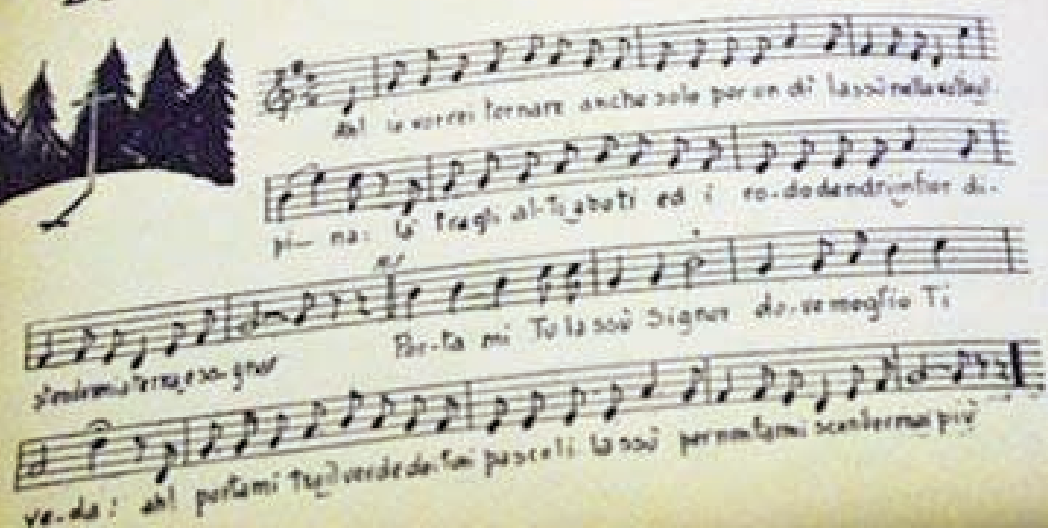 Ah! io vorrei tornare anche solo per un dì lassù nella valle al-
pi- na: là tra gli al-ti abeti ed i ro-do-dendri in fior di-
stendermi a terra e so-gnar
Por-ta mi Tu lassù Signor do-ve meglio Ti
ve-da: ah! portami tra il verde dei tuoi pascoli lassù per non farmi scender mai più